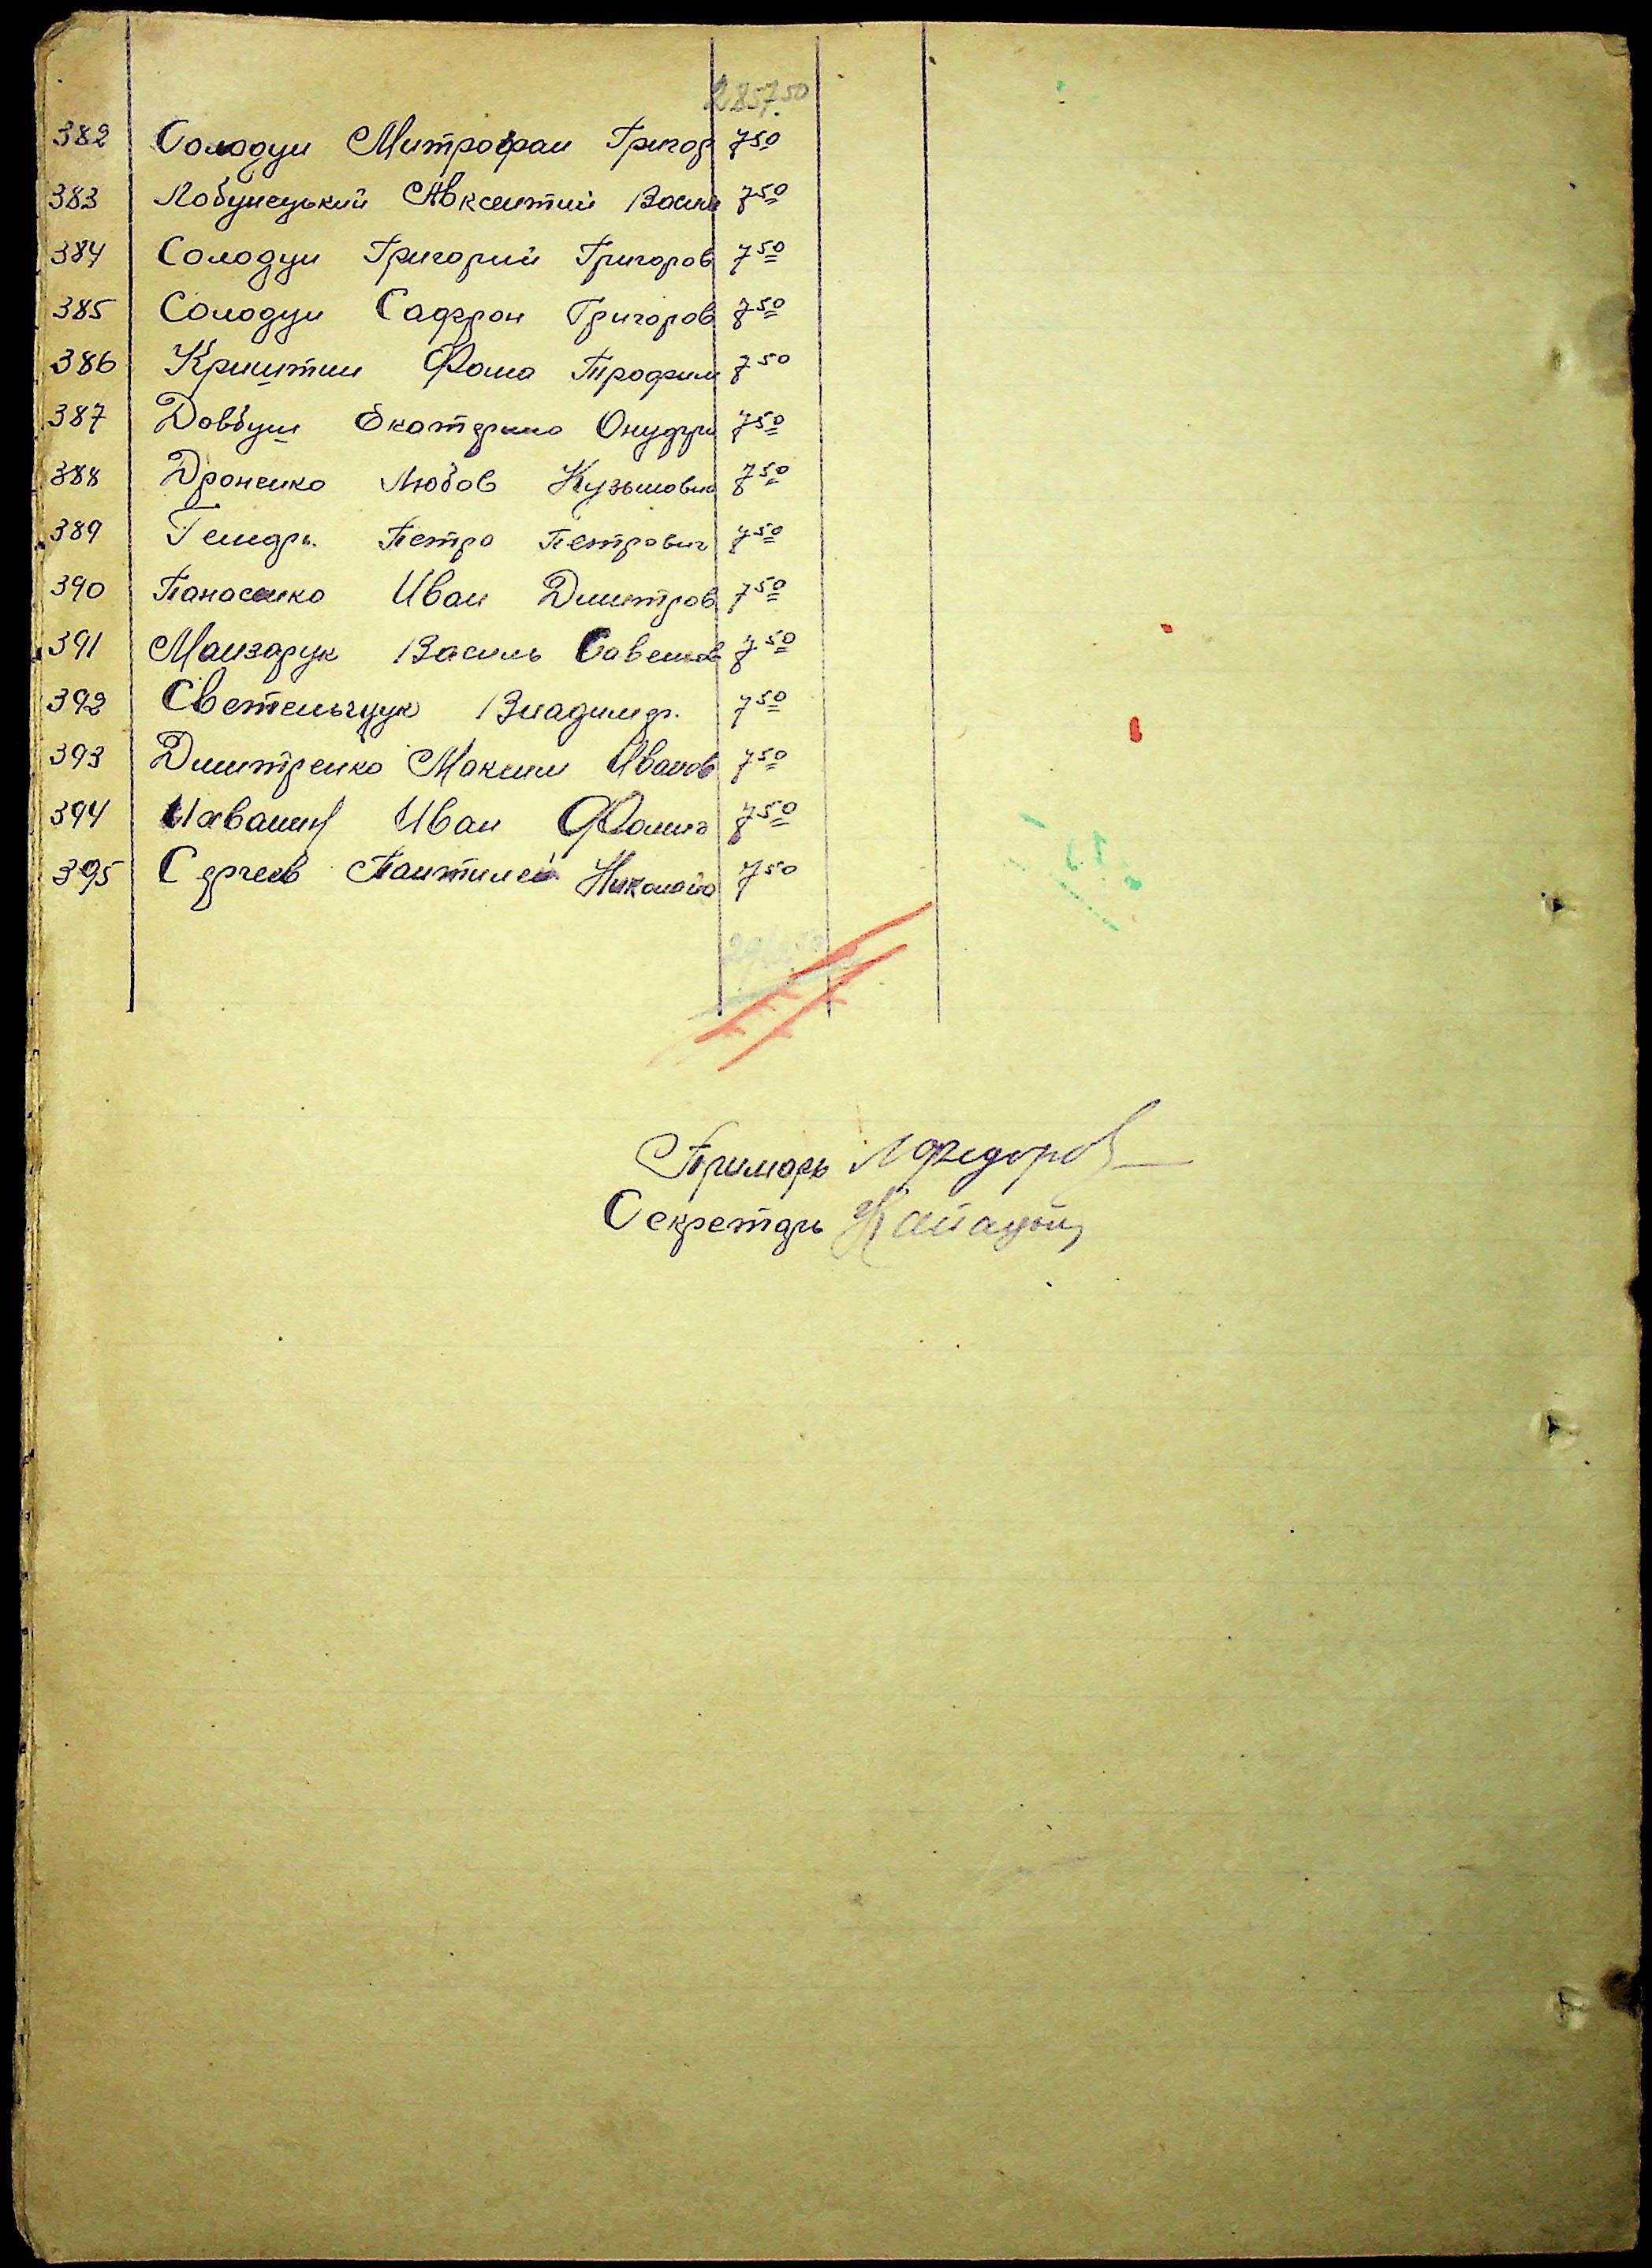 2857.50
382 Солодун Митрофан Григор 7 50
383 Лобунецький Авксентий Васил 7 50
384 Солодун Григорий Григоров 7 50
385 Солодун Сафрон Григоров 7 50
386 Фома Трофим 7 50
387 Довбуш Екатерина Онуфри 7 50
388 Дроненко Любов Кузьмовна 7 50
389 Петро Петрович 7 50
390 Панасенко Иван Дмитров 7 50
391 Манзарук Василь Савелов 7 50
392 Светельчук Владимер. 7 50
393 Дмитренко Максим Иванов 7 50
394 Иван Фомич 7 50
395 Сергеев Пантилей Николаев 7 50
Примарь Федоров
Секретарь